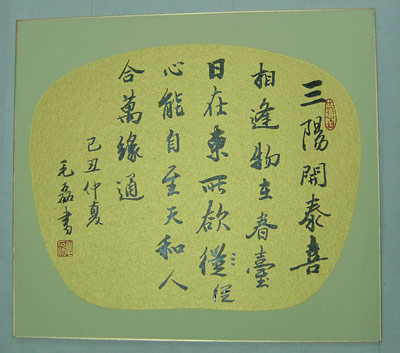 三陽開泰喜
相逢物在春臺
日在東所欲從
心能自至天和人
合萬緣通
己丑仲夏
毛磊書